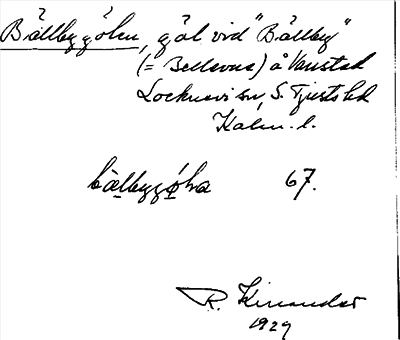 Bällbygölen, göl vid "Bällby"
(= Bellevue) å Vanstad
Locknevi sn, S. Tjusts hd
Kalm. l.
bälbygøłna 67.
R. Kinander
1929